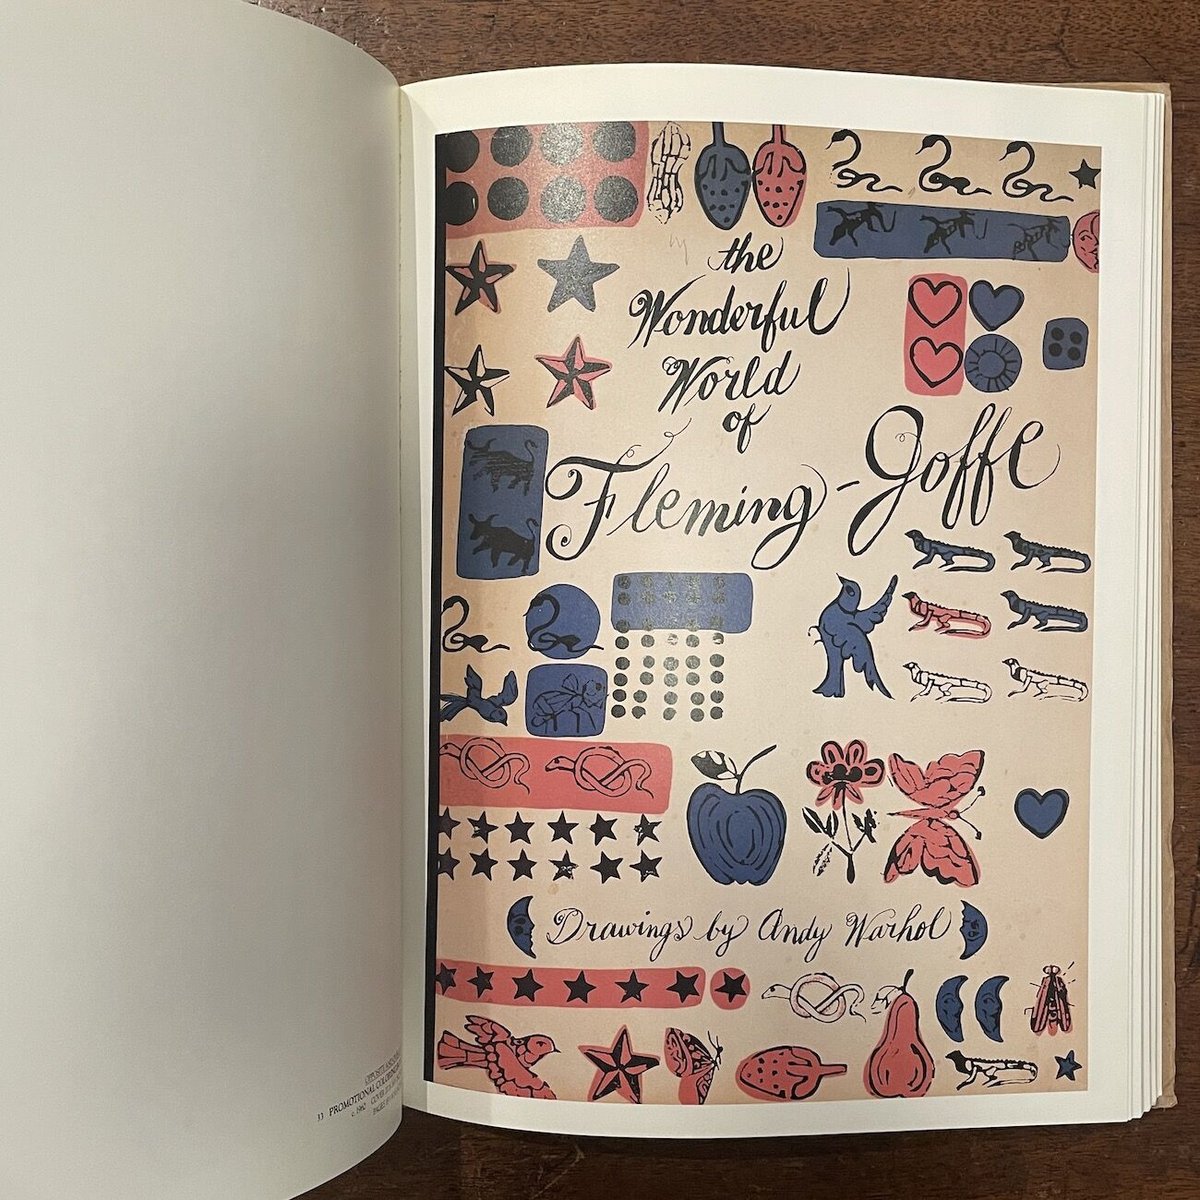 the
Wonderful
World
of
Fleming-Joffe
Drawings by Andy Warhol
33 PROMOTIONAL COLORING
c. 1962